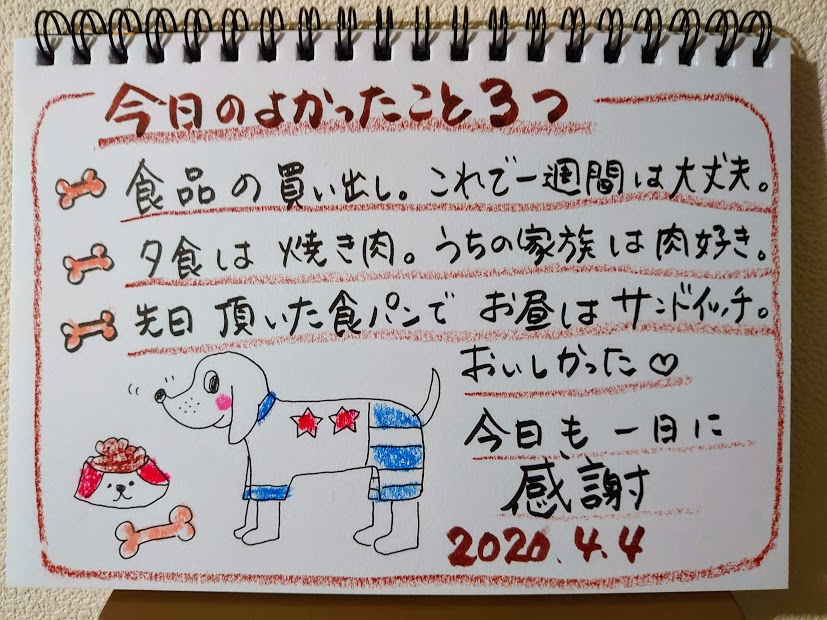 今日のよかったこと3つ
食品の買い出し。これで一週間は大丈夫。
夕食は 焼き肉。うちの家族は肉好き。
先日 頂いた食パンで お昼はサンドイッチ。
おいしかった♡
今日も 一日に
感謝
2020.4.4